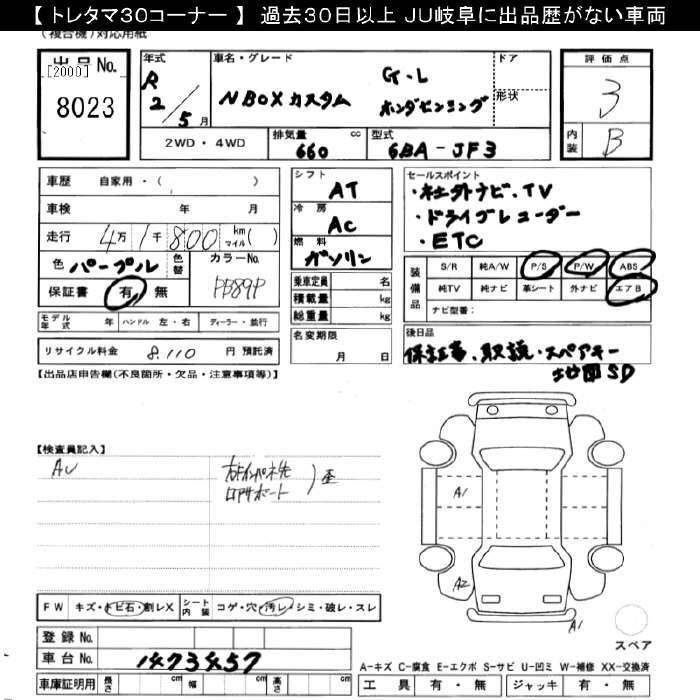 【 トレタマ30コーナー 】 過去30日以上 JU岐阜に出品歴がない車両
(複合機)対応用紙
出品 No.
[2000]
8023
年式
R2/5月
車名・グレード
N BOX カスタム
G・L
ホンダセンシング
ドア
形状
評価点
3
内装
B
2WD・4WD
排気量
660
cc
型式
6BA-JF3
車歴 自家用・( )
車検 年 月
走行 4万 1千 800 km マイル( )
色 パープル
色替
カラーNo.
PB89P
保証書 有・無
モデル年式 年 ハンドル 左・右 ディーラー・並行
リサイクル料金 8,110 円 預託済
シフト
AT
冷房
AC
燃料
ガソリン
乗車定員 名
積載量 kg
総重量 kg
名変期限
月 日
セールスポイント
・社外ナビ、TV
・ドライブレコーダー
・ETC
装備品
S/R 純A/W P/S P/W ABS
純TV 純ナビ 革シート 外ナビ エアB
ナビ型番:
後日品
保証書、取説、スペアキー
地図SD
【出品店申告欄(不良箇所・欠品・注意事項等)】
【検査員記入】
AU
コアサポート
歪
A1
A2
A1
スペア
FW キズ・トビ石・割レX
シート内装 コゲ・穴・汚レ・シミ・破レ・スレ
登録 No.
車台 No. 1473457
車庫証明用 長さ cm 幅 cm 高さ cm
A-キズ C-腐食 E-エクボ S-サビ U-凹ミ W-補修 XX-交換済
工具 有・無 ジャッキ 有・無